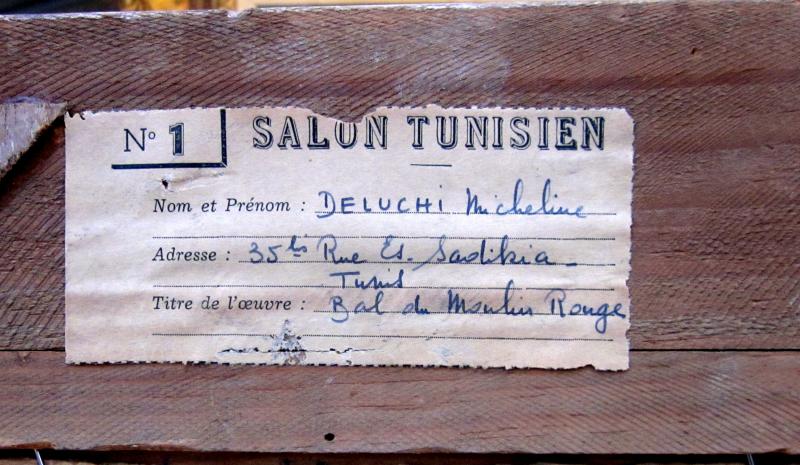 N° 1
SALON TUNISIEN
Nom et Prénom : DELUCHI Micheline
Adresse : 35bis Rue Es-Sadikia -
Tunis
Titre de l'œuvre : Bal du Moulin Rouge